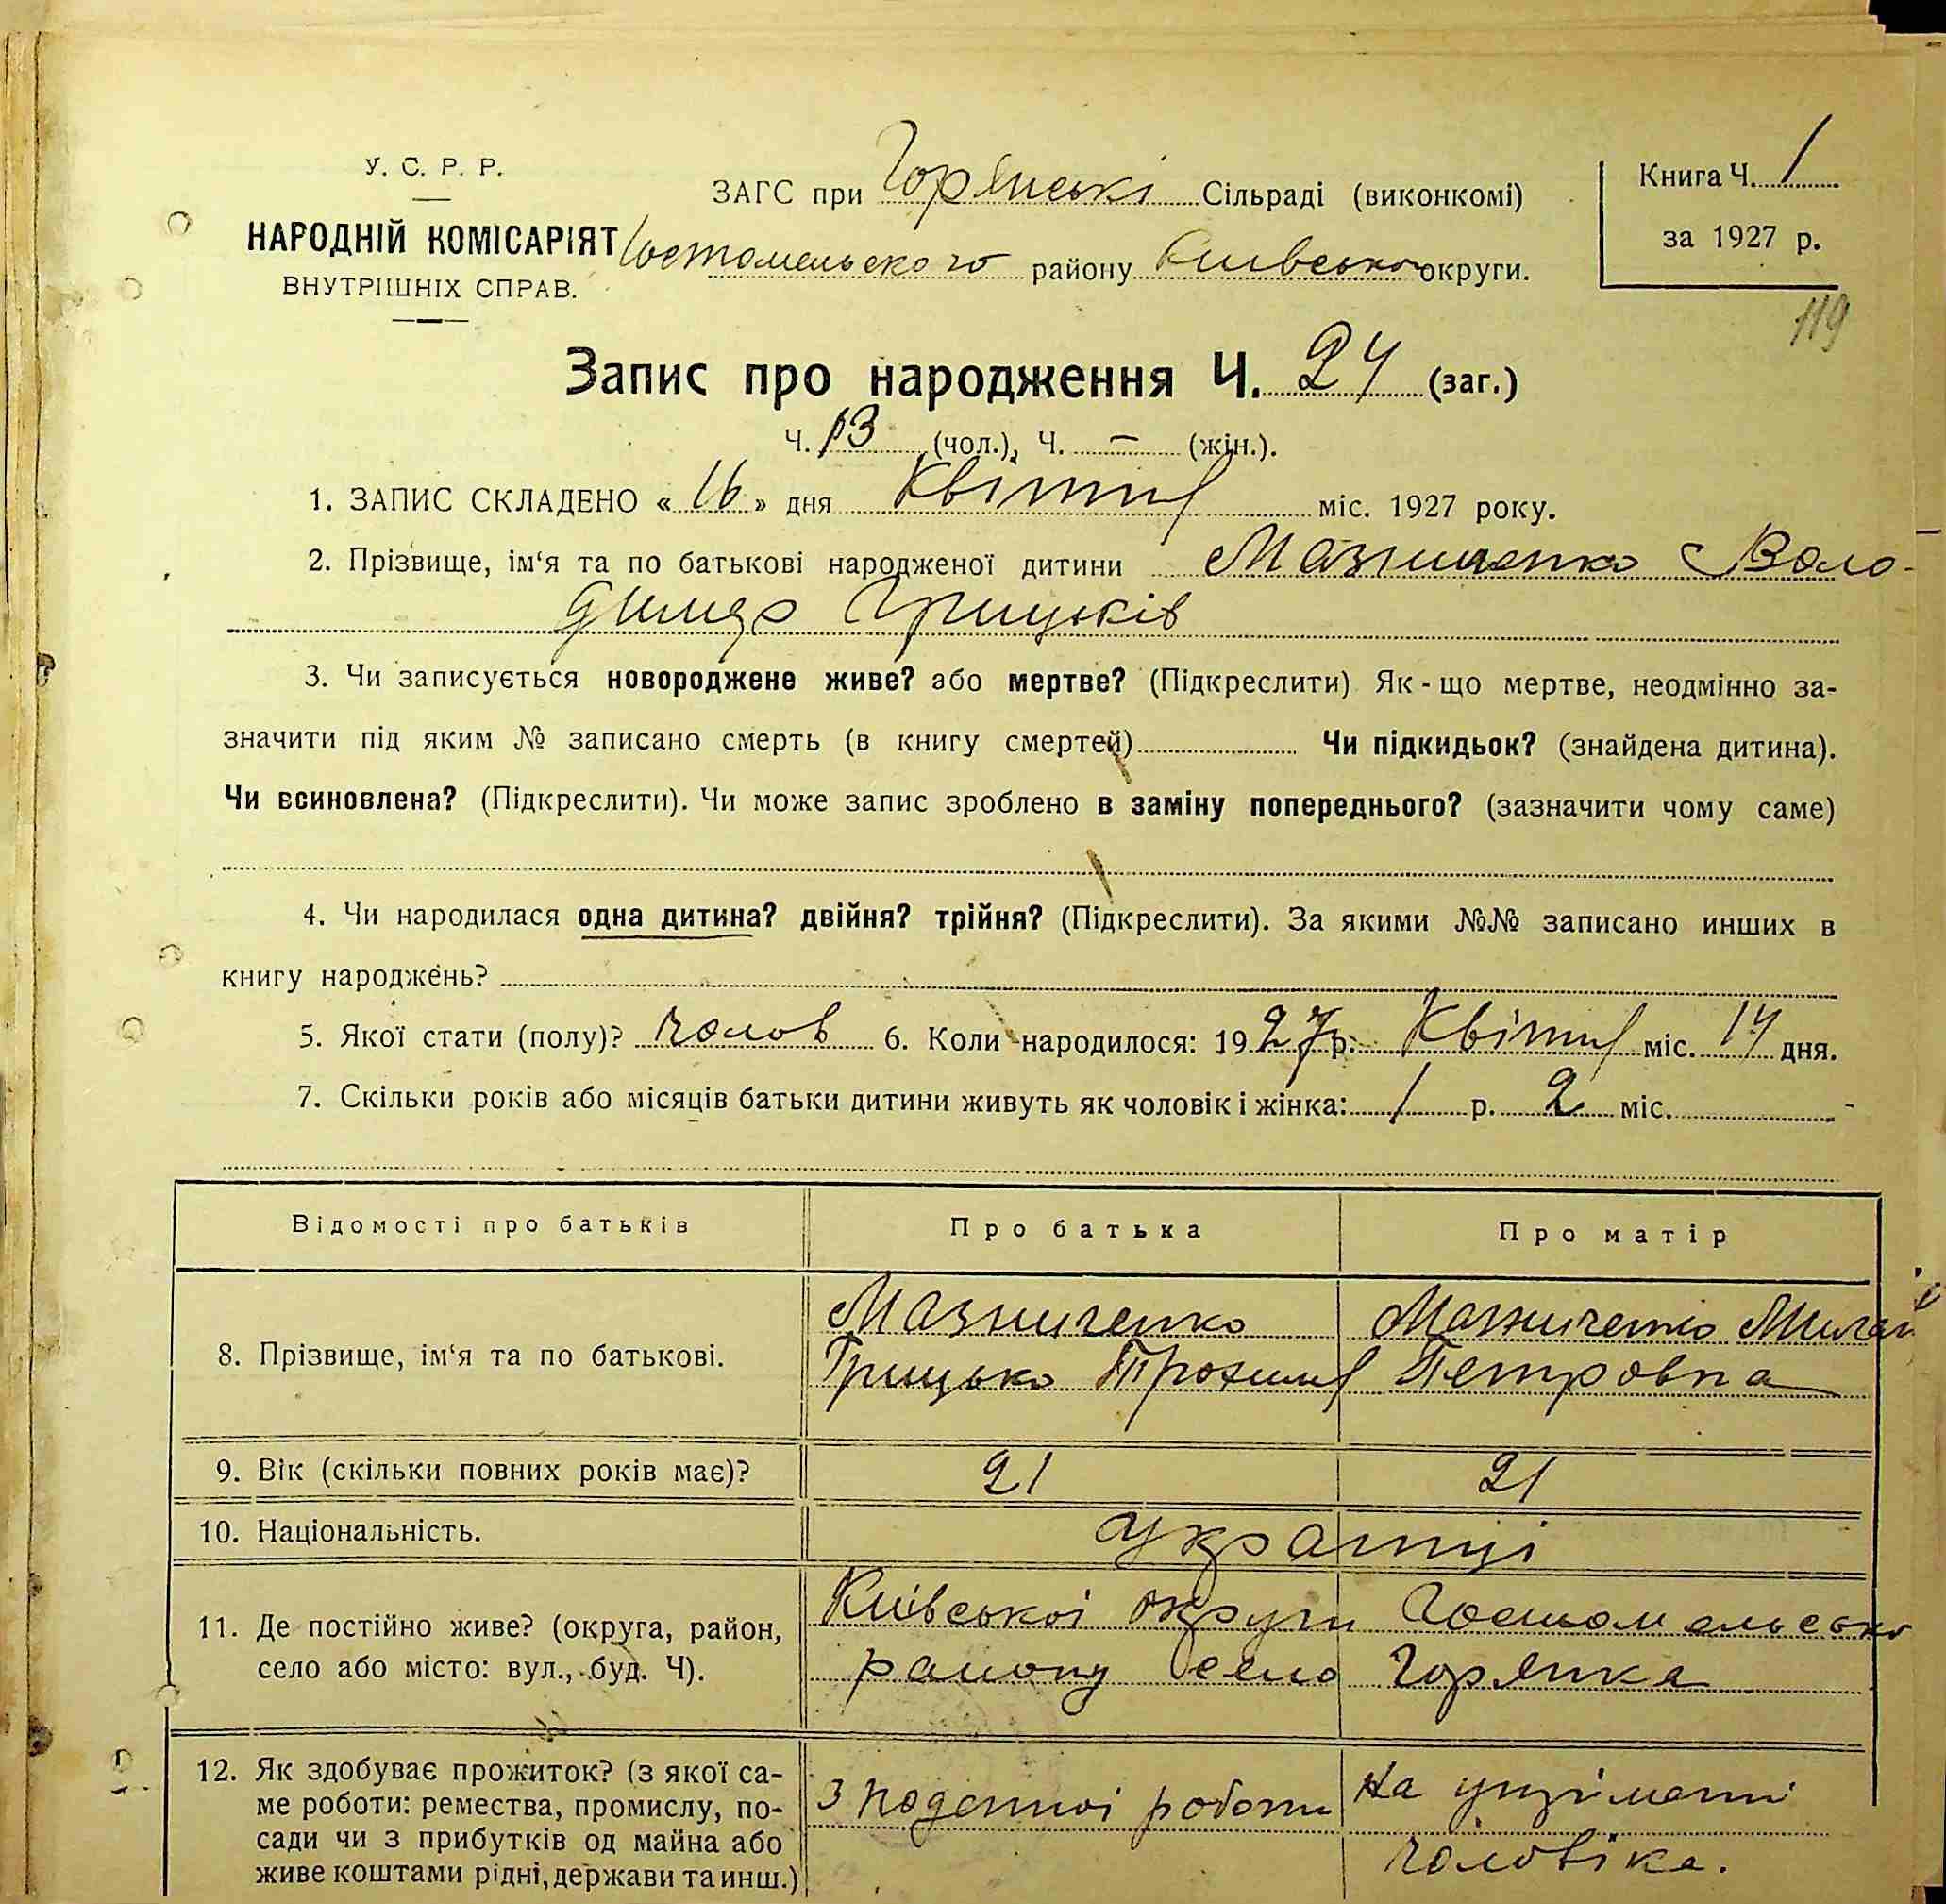 У. С. Р. Р.
НАРОДНІЙ КОМІСАРІЯТ
ВНУТРІШНІХ СПРАВ.
ЗАГС при Горянські Сільраді (виконкомі)
Гостомельського району Київсько округи.
Книга Ч. 1
за 1927 р.
119
Запис про народження Ч. 24 (заг.)
Ч. 13 (чол.), Ч. — (жін.).
1. ЗАПИС СКЛАДЕНО « 16 » дня Квітня міс. 1927 року.
2. Прізвище, ім‘я та по батькові народженої дитини Мазниченко Воло-
димир Грицьків
3. Чи записується новороджене живе? або мертве? (Підкреслити) Як - що мертве, неодмінно за-
значити під яким № записано смерть (в книгу смертей) Чи підкидьок? (знайдена дитина).
Чи всиновлена? (Підкреслити). Чи може запис зроблено в заміну попереднього? (зазначити чому саме)
4. Чи народилася одна дитина? двійня? трійня? (Підкреслити). За якими №№ записано инших в
книгу народжень?
5. Якої стати (полу)? чолов 6. Коли народилося: 1927 р. Квітня міс. 14 дня.
7. Скільки років або місяців батьки дитини живуть як чоловік і жінка: 1 р. 2 міс.
Відомості про батьків Про батька Про матір
8. Прізвище, ім‘я та по батькові.
Мазниченко
Грицько Трохим
Мазниченко
Петровна
9. Вік (скільки повних років має)? 21 21
10. Національність. Українці
11. Де постійно живе? (округа, район,
село або місто: вул., буд. Ч).
Київської округи Гостомельсько
району село Горянка
12. Як здобуває прожиток? (з якої са-
ме роботи: ремества, промислу, по-
сади чи з прибутків од майна або
живе коштами рідні, держави та инш.)
З поденної роботи
На утріманні
чоловіка.